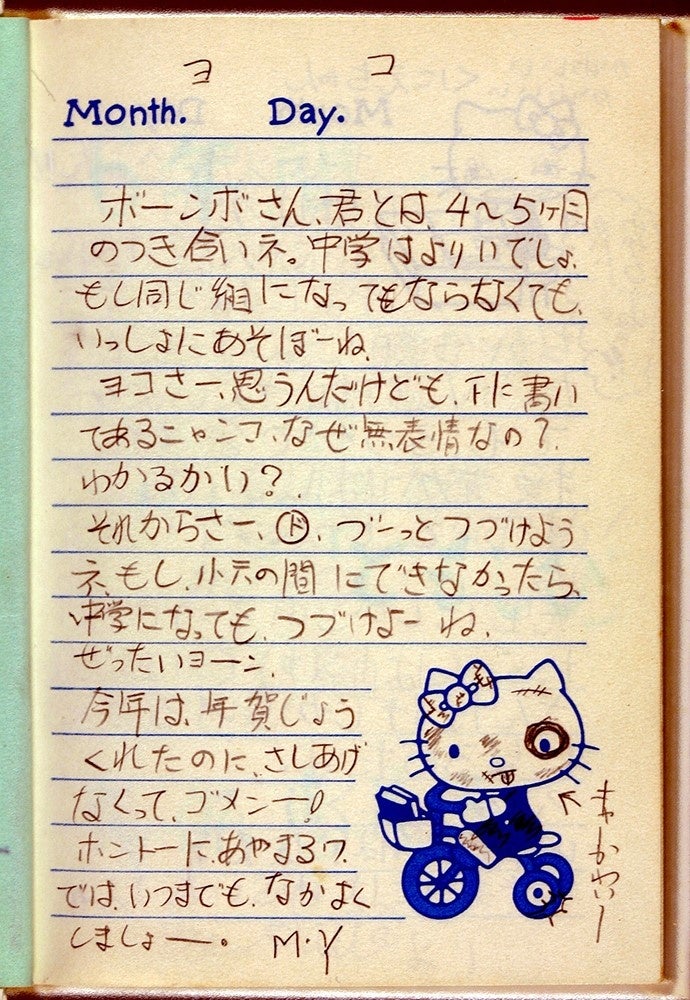 ヨ コ
Month. Day.
ボーンボさん、君とは、4〜5ヶ月
のつき合いネ。中学はよりいでしょ、
もし同じ組になってもならなくても、
いっしょにあそぼーね、
ヨコさー、思うんだけども、下に書い
てあるニャンコ、なぜ無表情なの?、
わかるかい?、
それからさー、ド、づーっとつづけよう
ネ、もし、小六の間にできなかったら、
中学になっても、つづけよーね、
ぜったいヨーン、
今年は、年賀じょう
くれたのに、さしあげ
なくって、ゴメンー!
ホントーに、あやまるワ、
では、いつまでも、なかよく
しましょーー。 M・Y
キャかわいー